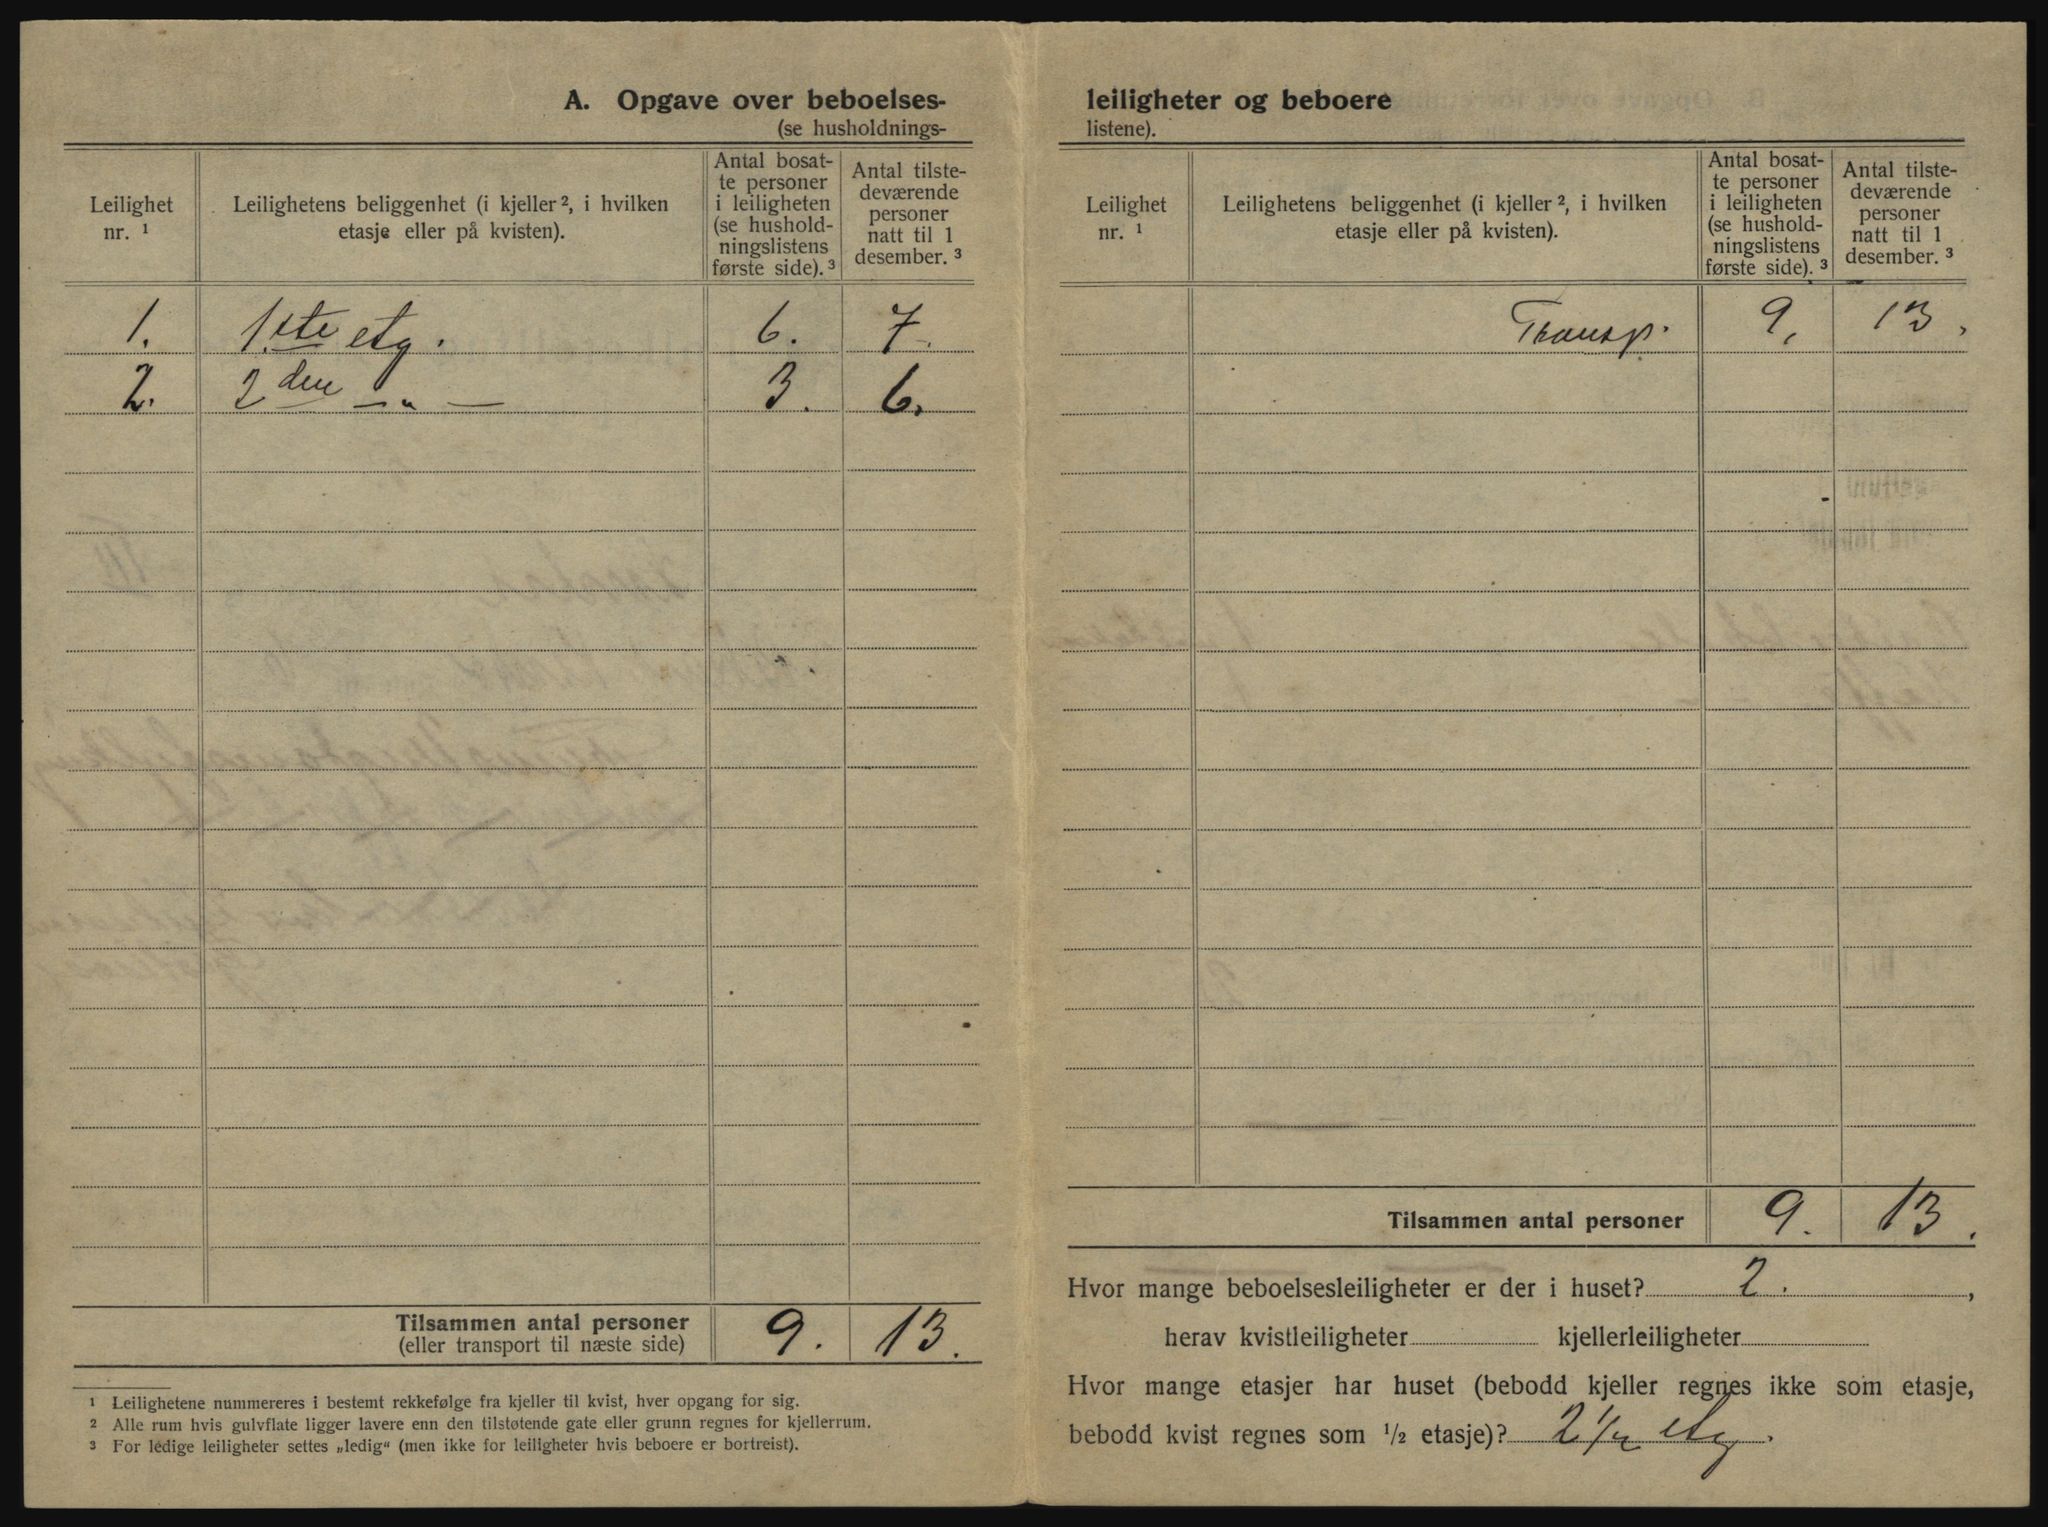 A. Opgave over beboelses-
(se husholdnings-
Leilighet nr. 1
Leilighetens beliggenhet (i kjeller 2, i hvilken
etasje eller på kvisten).
Antal bosat-
te personer
i leiligheten
(se hushold-
ningslistens
første side). 3
Antal tilste-
deværende
personer
natt til 1
desember. 3
1. 1.ste etg. 6. 7.
2. 2den —„— 3. 6.
Tilsammen antal personer
(eller transport til næste side) 9. 13.
1 Leilighetene nummereres i bestemt rekkefølge fra kjeller til kvist, hver opgang for sig.
2 Alle rum hvis gulvflate ligger lavere enn den tilstøtende gate eller grunn regnes for kjellerrum.
3 For ledige leiligheter settes „ledig“ (men ikke for leiligheter hvis beboere er bortreist).
leiligheter og beboere
listene).
Leilighet nr. 1
Leilighetens beliggenhet (i kjeller 2, i hvilken
etasje eller på kvisten).
Antal bosat-
te personer
i leiligheten
(se hushold-
ningslistens
første side). 3
Antal tilste-
deværende
personer
natt til 1
desember. 3
Transp. 9, 13.
Tilsammen antal personer 9. 13.
Hvor mange beboelsesleiligheter er der i huset? 2. ,
herav kvistleiligheter kjellerleiligheter
Hvor mange etasjer har huset (bebodd kjeller regnes ikke som etasje,
bebodd kvist regnes som 1/2 etasje)? 2 1/2 etg.